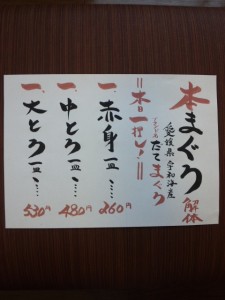 本まぐろ解体
愛媛県宇和海産
だてまぐろ
＝本日一押し！＝
一、赤身一皿……260円
一、中とろ一皿……480円
一、大とろ一皿……530円